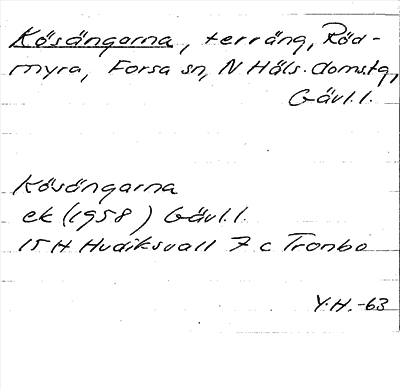 Kösängarna, terräng, Röd-
myra, Forsa sn, N Häls. doms.tg,
Gävl.l.
Kösängarna
ek (1958) Gävl.l.
15H Hudiksvall 7 c Tronbo
Y.H.-63